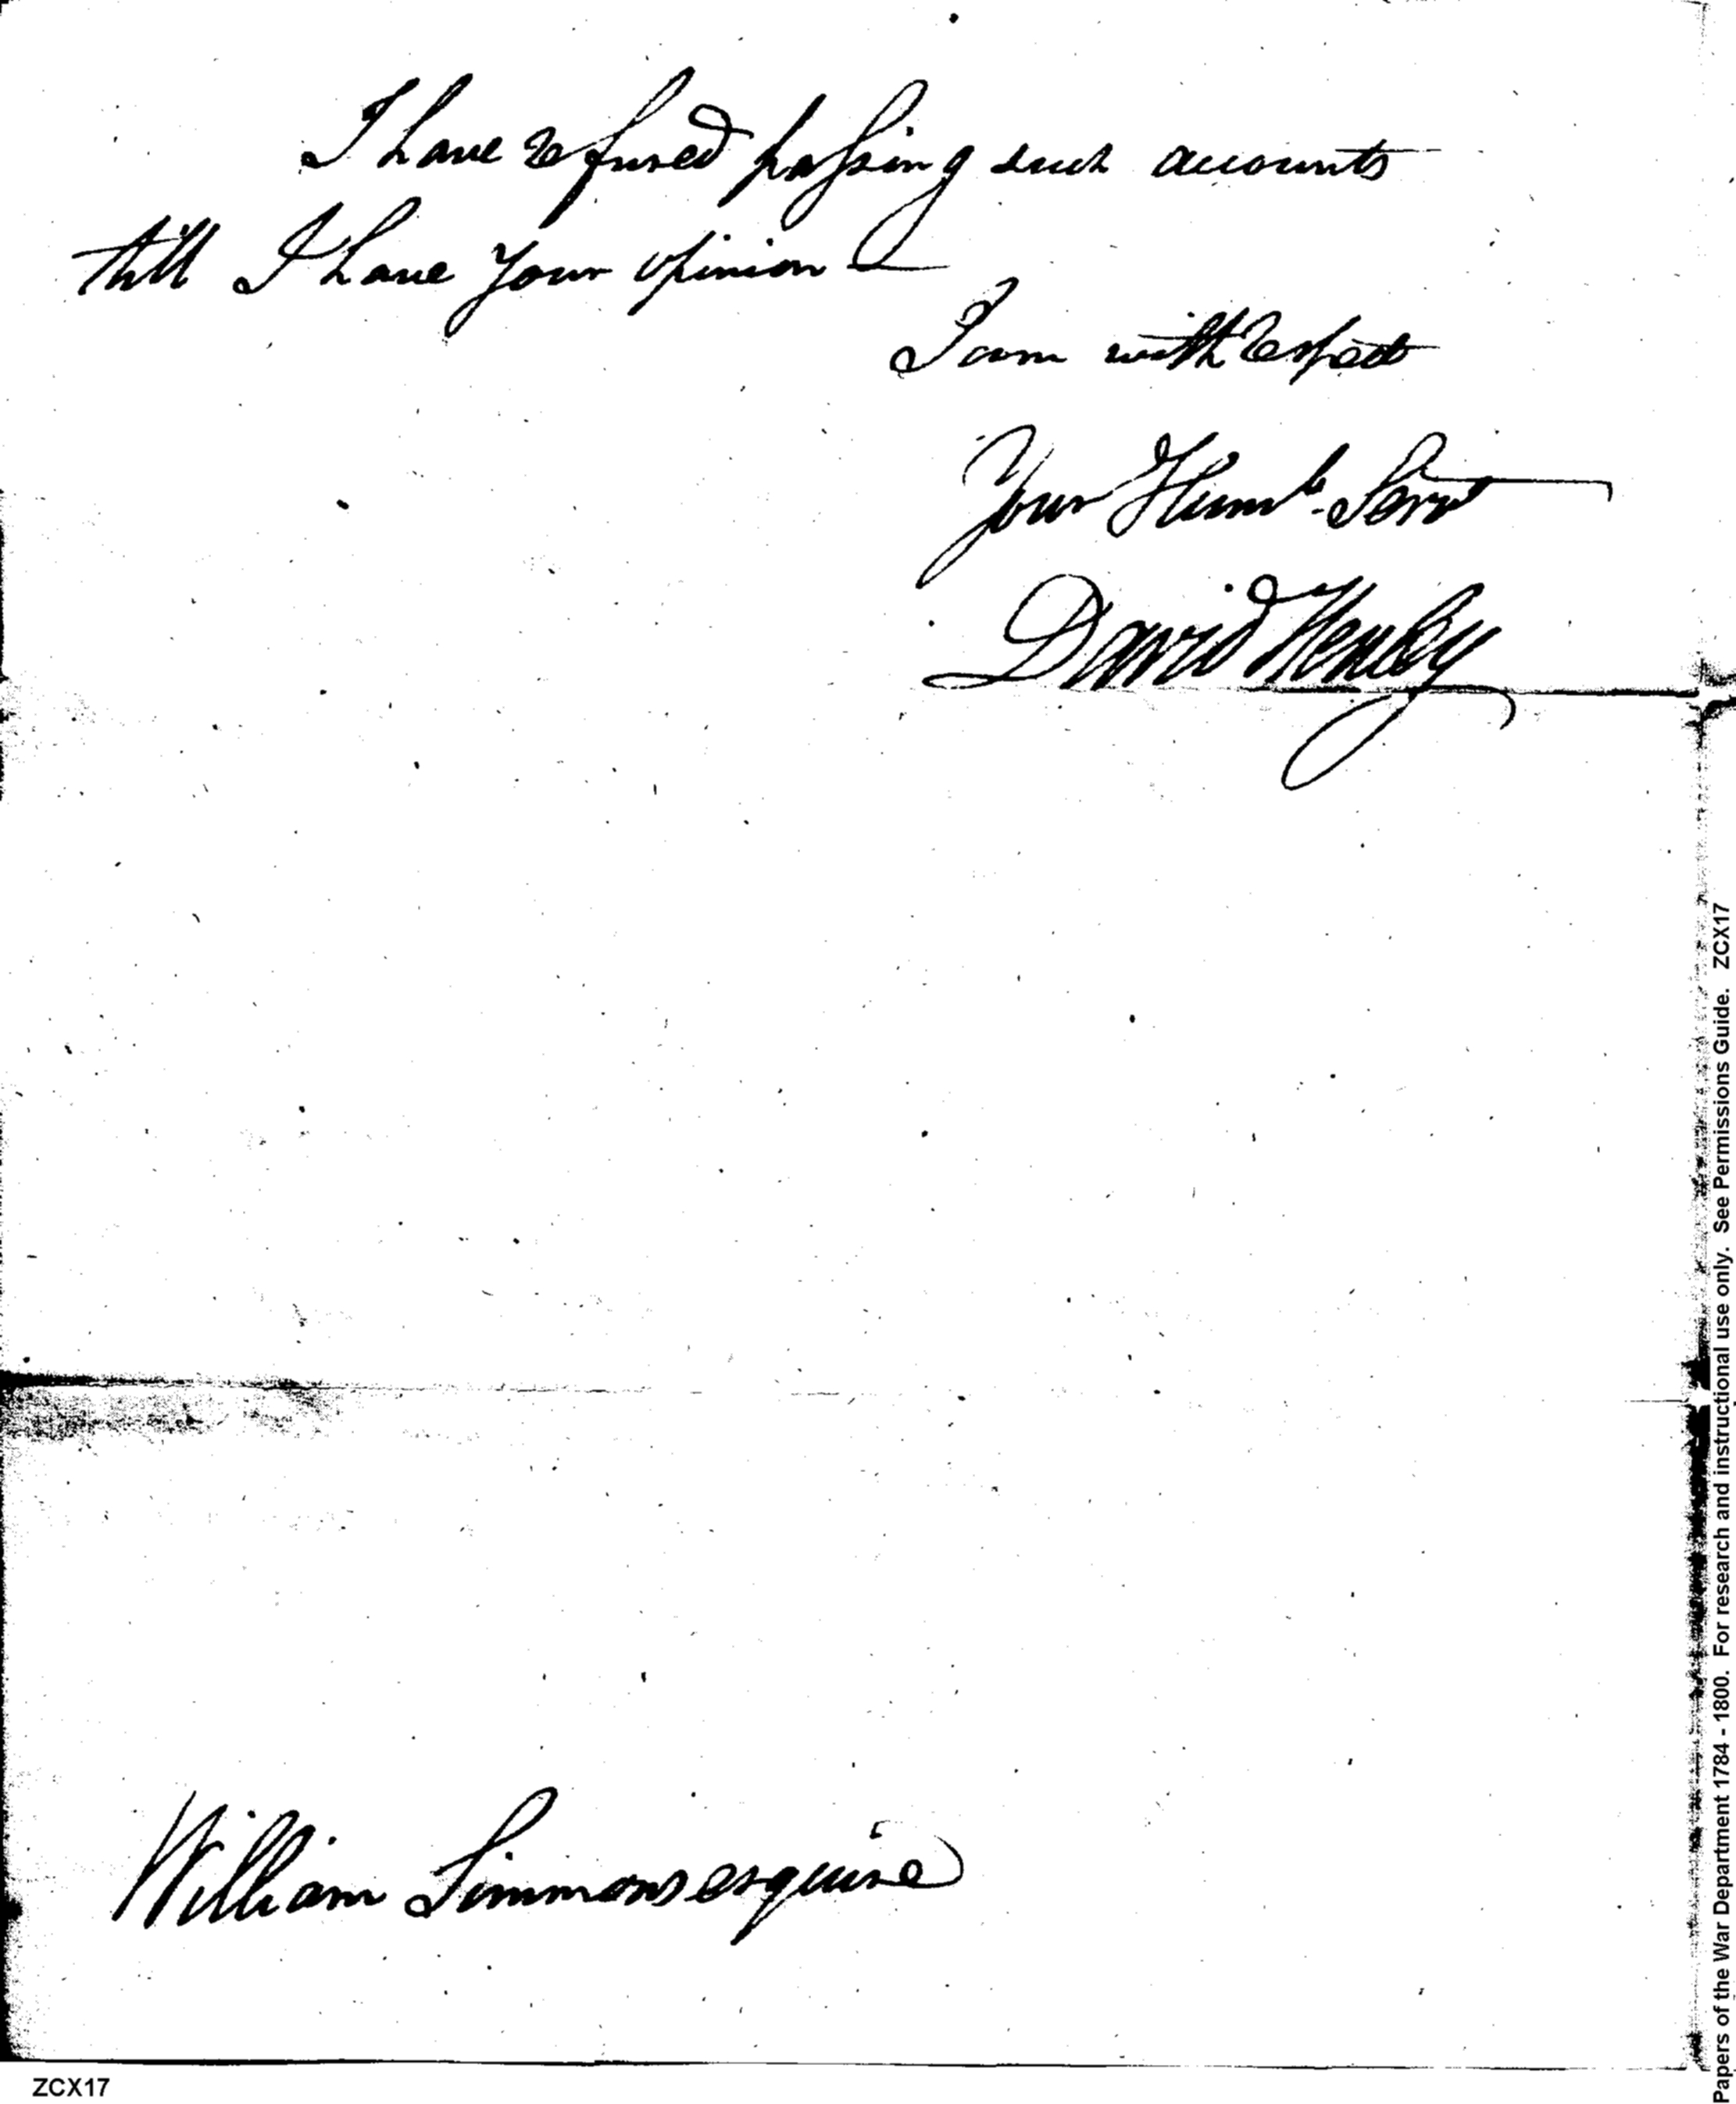 I have refused passing such accounts
till I have your opinion
I am with respect
Your Humb. Servt
David Henley
William Simmons esquire
ZCX17
Papers of the War Department 1784 - 1800. For research and instructional use only. See Permissions Guide. ZCX17